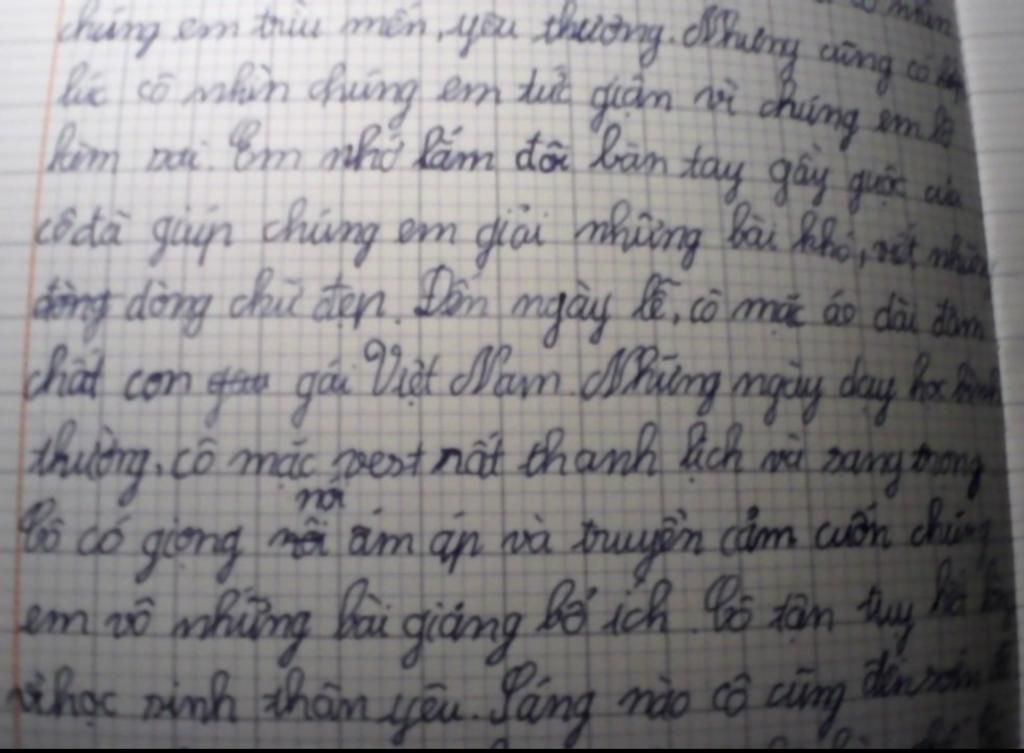 cô nhìn
chúng em trìu mến, yêu thương. Nhưng cũng có
lúc cô nhìn chúng em tức giận vì chúng em
kém cỏi. Em nhớ lắm đôi bàn tay gầy guộc của
cô đã giúp chúng em giải những bài khó, viết nhiều
dòng dòng chữ đẹp. Đến ngày lễ, cô mặc áo dài đậm
chất con gái Việt Nam. Những ngày dạy học bình
thường, cô mặc vest rất thanh lịch và sang trọng
nói
Cô có giọng ấm áp và truyền cảm cuốn chúng
em vô những bài giảng bổ ích. Cô tận tụy hết
vì học sinh thân yêu. Sáng nào cô cũng đến sớm